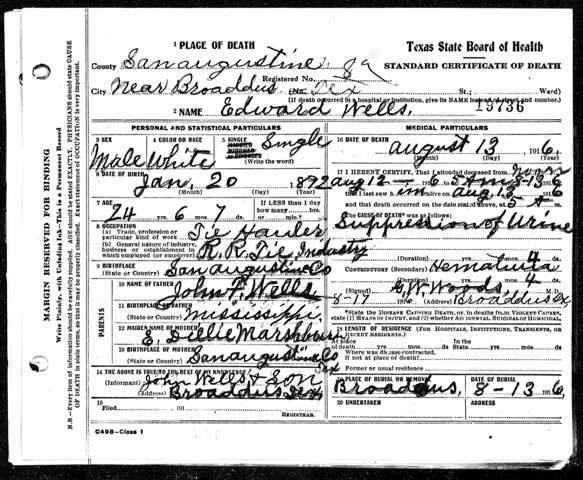 1 PLACE OF DEATH
Texas State Board of Health
STANDARD CERTIFICATE OF DEATH
County San augustine 89
Registered No.
City Near Broaddus (No. Tex St.; Ward)
(If death occurred in a hospital or institution, give its NAME instead of street and number.)
2 NAME Edward Wells. 19736
PERSONAL AND STATISTICAL PARTICULARS
MEDICAL PARTICULARS
3 SEX Male
4 COLOR OR RACE White
5 SINGLE Single
(Write the word)
6 DATE OF BIRTH
Jan. 20 1892
(Month) (Day) (Year)
7 AGE
24 yrs. 6 mos. 7 ds.
If LESS than 1 day
how many hrs.
or min.
8 OCCUPATION
(a) Trade, profession or
particular kind of work Tie Hauler
(b) General nature of industry,
business or establishment in
which employed (or employer) R.R. Tie Industry
9 BIRTHPLACE
(State or Country) San augustine Co
PARENTS
10 NAME OF FATHER
John F. Wells
11 BIRTHPLACE OF FATHER
(State or Country) Mississippi
12 MAIDEN NAME OF MOTHER
E. Dellie
13 BIRTHPLACE OF MOTHER
(State or Country) San augustine Co Tex
14 THE ABOVE IS TRUE TO THE BEST OF MY KNOWLEDGE
(Informant) John Wells & Son
(Address) Broaddus Tex
15
Filed , 191
REGISTRAR.
16 DATE OF DEATH
august 13, 1916
(Month) (Day) (Year)
17 I HEREBY CERTIFY, That I attended deceased from
aug 12 1916
that I last saw h im alive on aug 13 1916
and that death occurred on the date stated above, at 5 A
The CAUSE OF DEATH* was as follows:
Suppression of Urine
(Duration) yrs. mos. 4 ds.
CONTRIBUTORY (Secondary) Hematuria
(Duration) yrs. mos. 4 ds.
(Signed) G.W. Woods, M.D.
8-17 1916 (Address) Broaddus Tex
*State the DISEASE CAUSING DEATH, or, in deaths from VIOLENT CAUSES,
state (1) MEANS OF INJURY, and (2) whether ACCIDENTAL, SUICIDAL or HOMICIDAL.
18 LENGTH OF RESIDENCE (FOR HOSPITALS, INSTITUTIONS, TRANSIENTS, OR
RECENT RESIDENTS.)
At place
of death yrs. mos. ds. In the
State yrs. mos. ds.
Where was disease contracted,
if not at place of death?
Former or usual residence
19 PLACE OF BURIAL OR REMOVAL
Broaddus,
DATE OF BURIAL
8-13 1916
20 UNDERTAKER
ADDRESS
C498—Class 1
MARGIN RESERVED FOR BINDING
Write Plainly, with Unfading Ink—This is a Permanent Record
N.B.—Every item of information should be carefully supplied. AGE should be stated EXACTLY. PHYSICIANS should state CAUSE
OF DEATH in plain terms, so that it may be properly classified. Exact statement of OCCUPATION is very important.